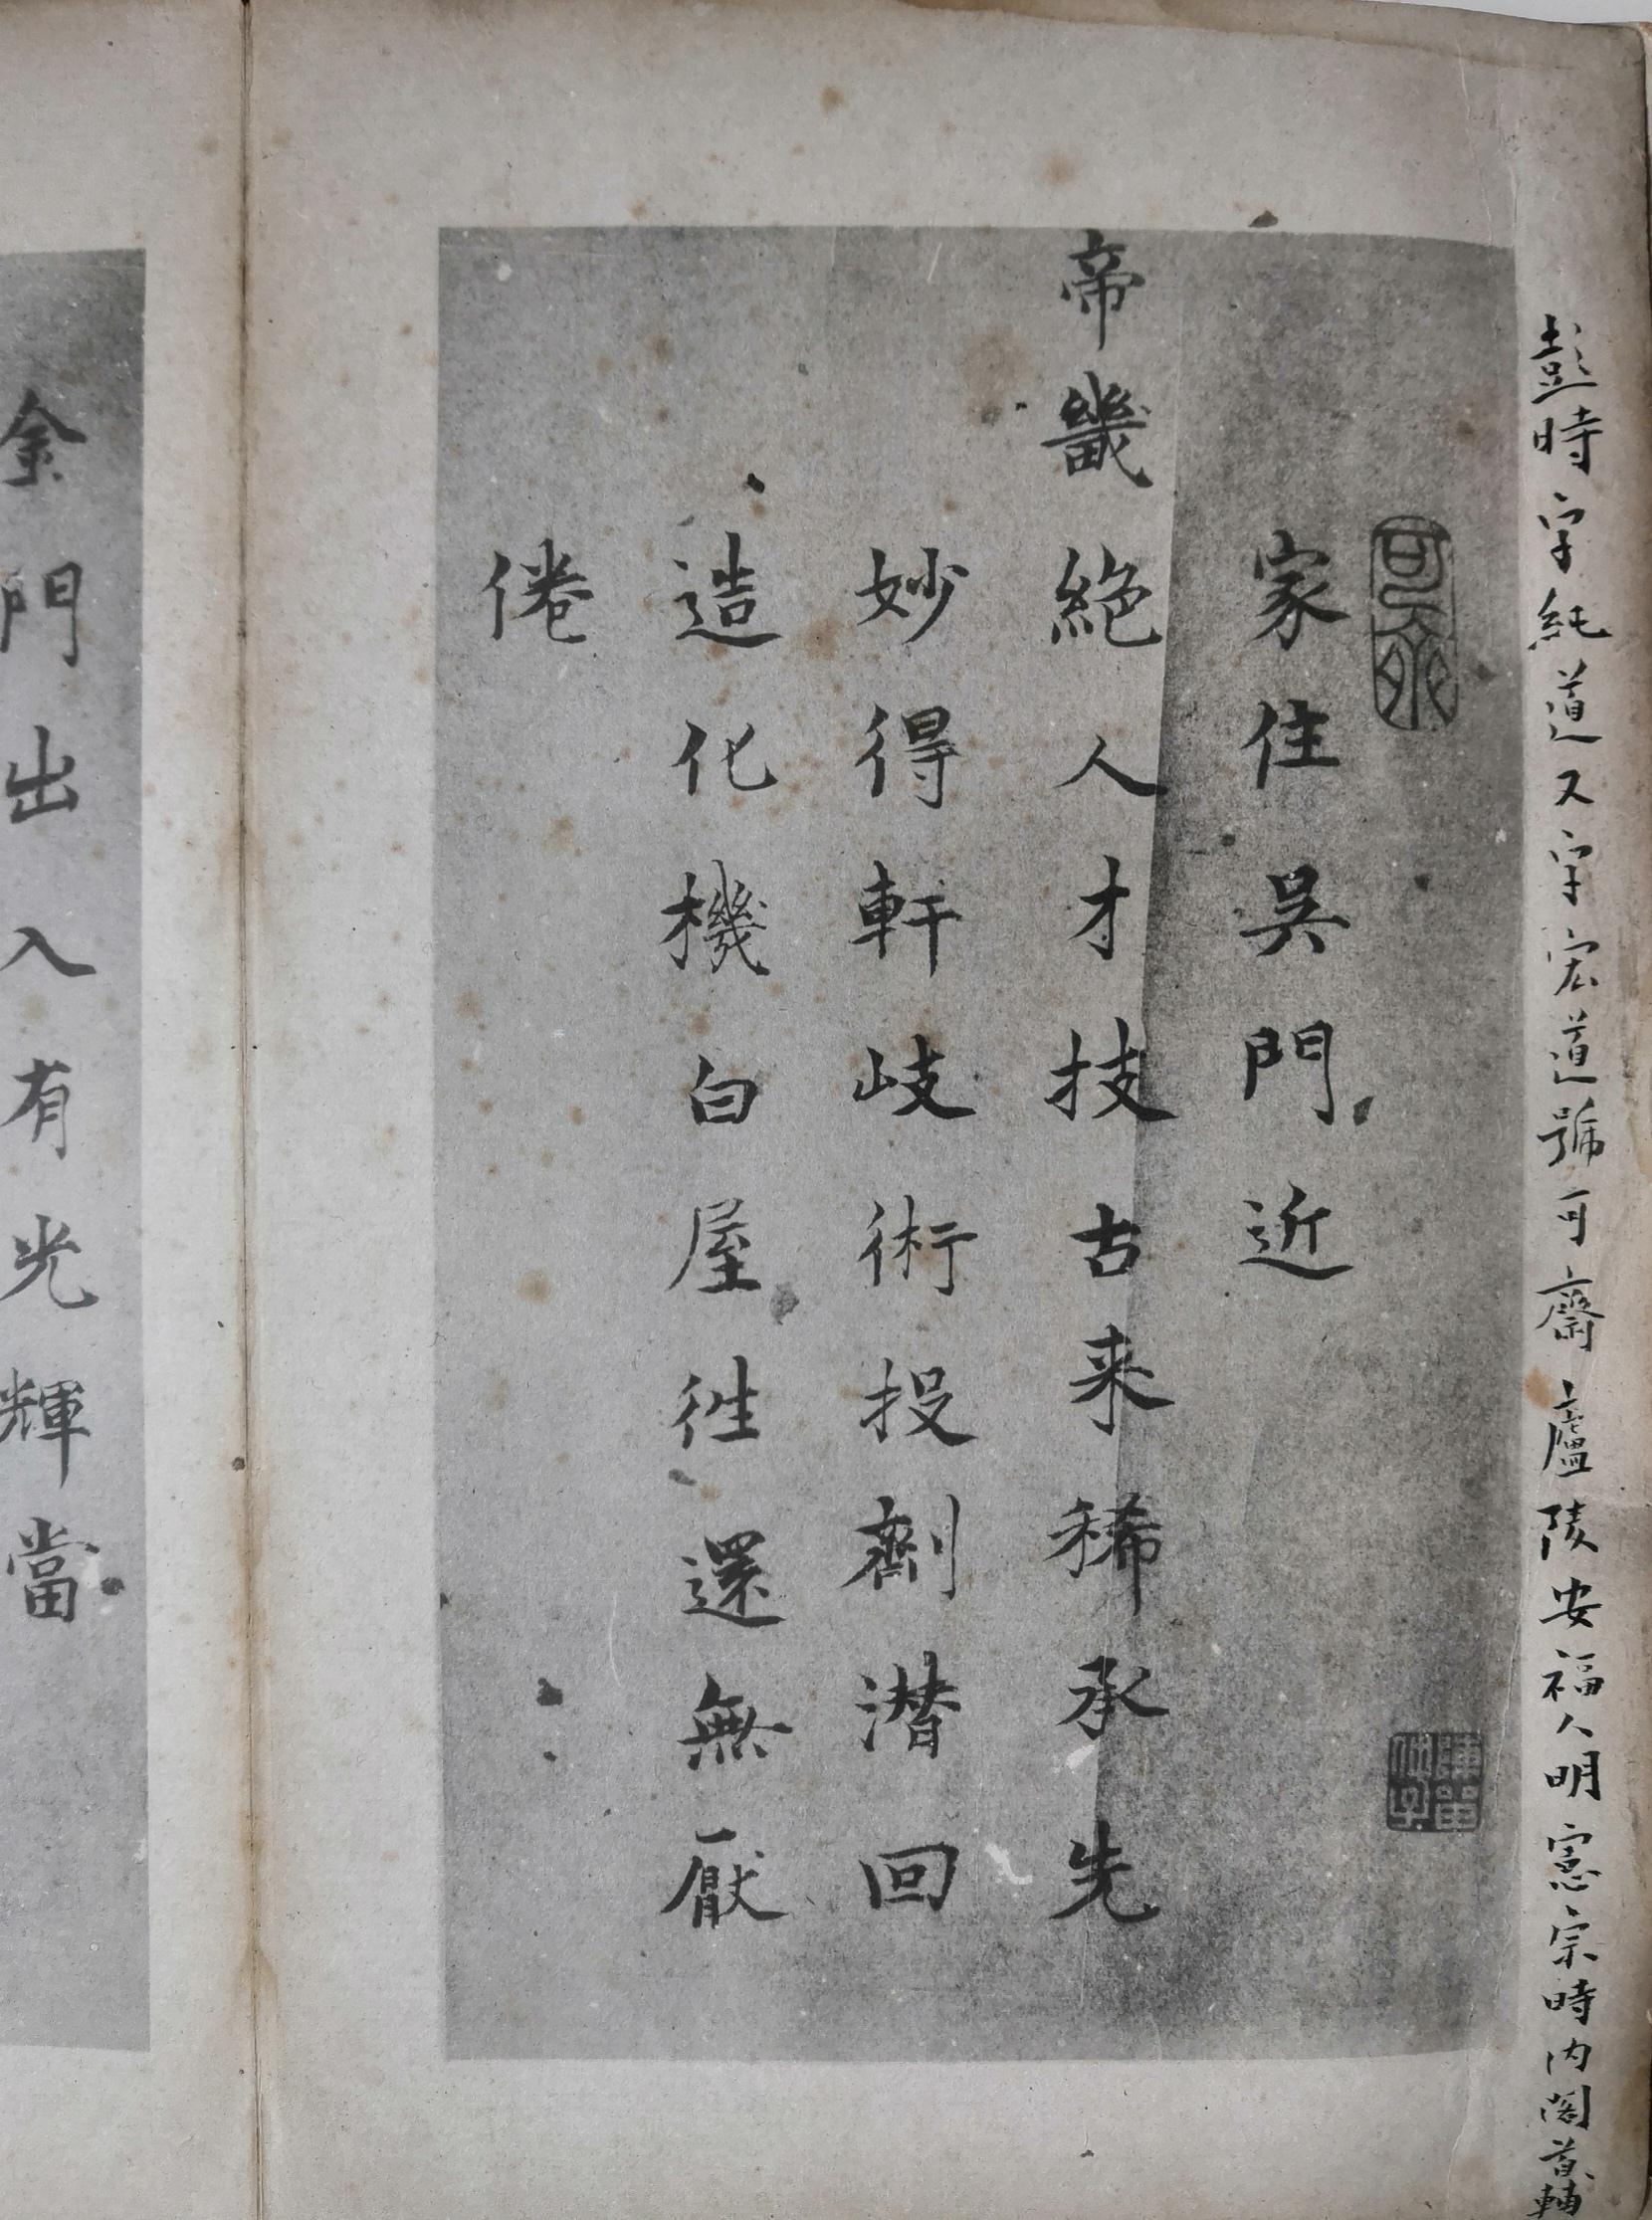 彭時字純道又字宏道號可齋廬陵安福人明憲宗時內閣首輔
可齋
家住吳門近
帝畿絕人才技古来稀承先
妙得軒岐術投劑潜回
造化機白屋徃還無厭
倦
金門出入有光輝當